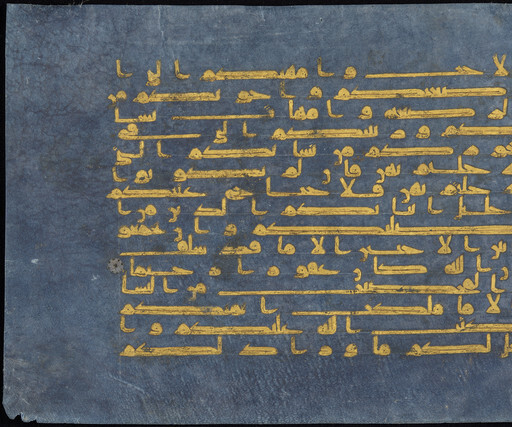 لاخت وامهتكم التي ا
ضعنكم واخوتكم من
الرضعه وامهت نسا
ئكم وربئبكم التي في
كم من نسائكم التي
دخلتم بهن فان لم تكونوا
دخلتم بهن فلا جناح عليكم
حلئل ابنائكم الذين من ا
بكم وان تجمعو
بين الاختين الا ما قد سلف
ن الله كان غفورا رحيما
والمحصنت من النسا
لا ما ملكت ايمنكم
كتب الله عليكم وا
حل لكم ما ورا ذلكم